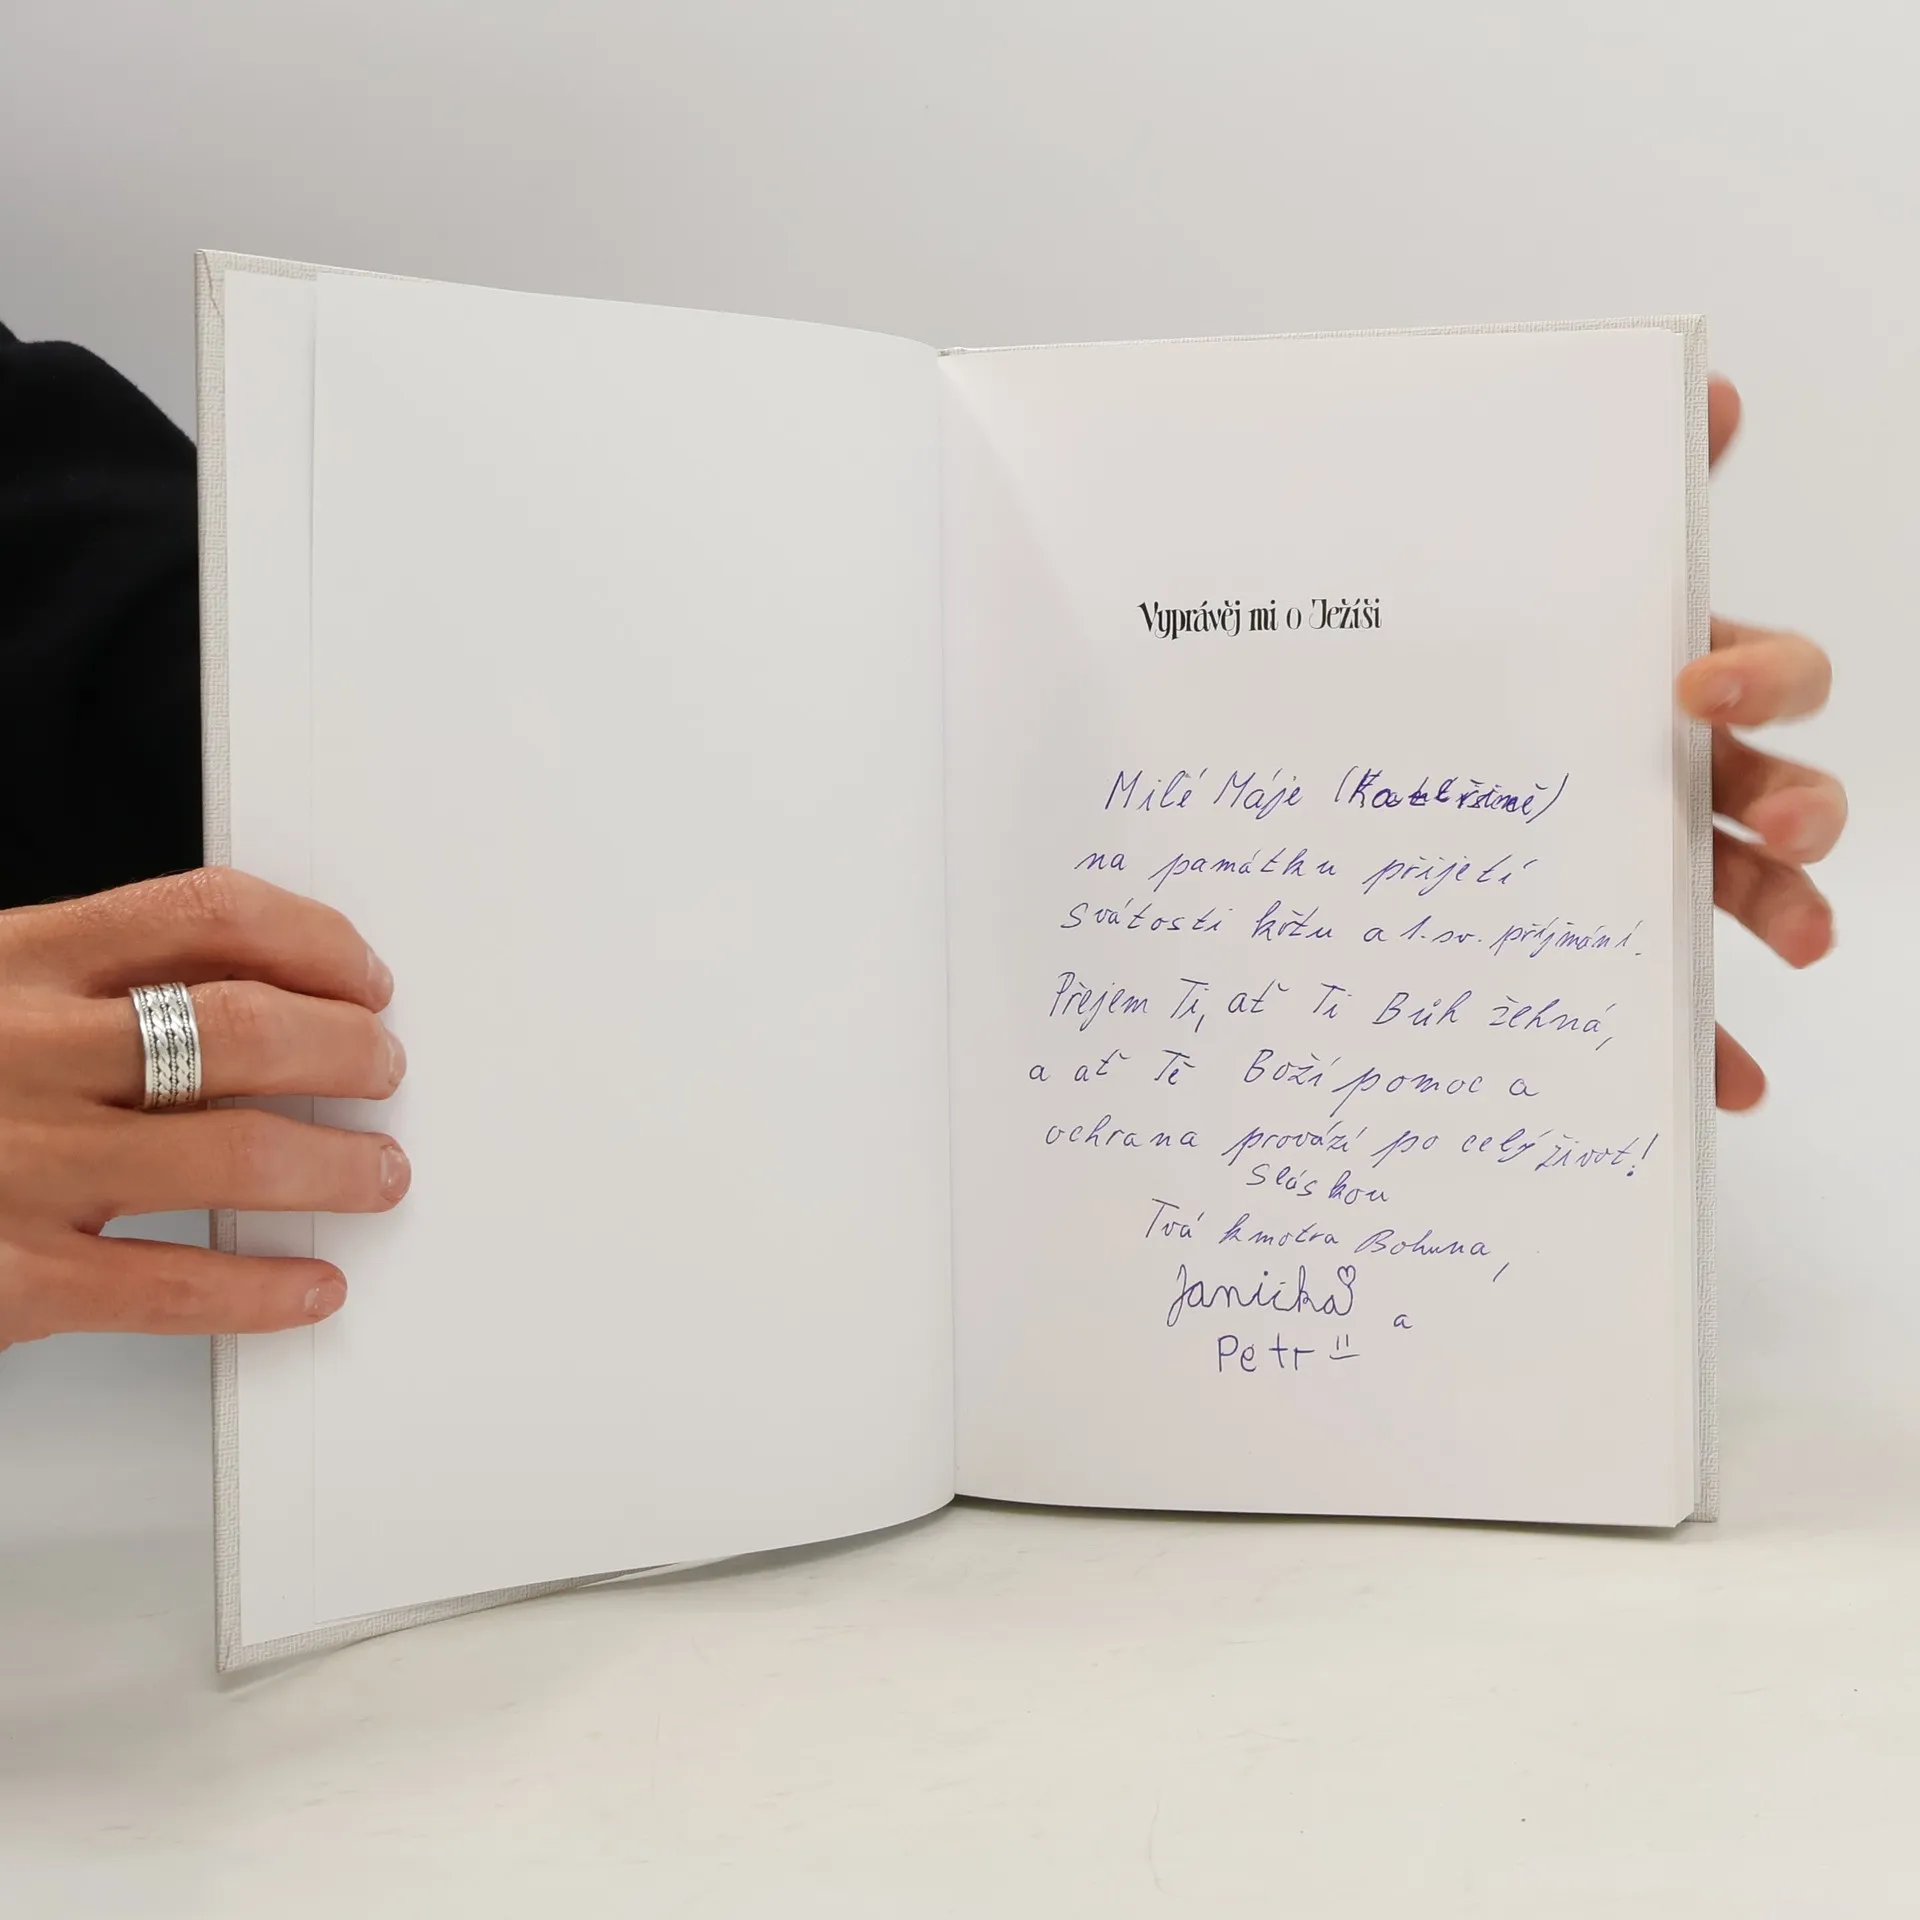 Vyprávěj mi o Ježíši
Milé Máje (Kateřině)
na památku přijetí
svátosti křtu a 1. sv. příjmání.
Přejem Ti, ať Ti Bůh žehná,
a ať Tě Boží pomoc a
ochrana provází po celý život!
S láskou
Tvá kmotra Bohuna,
Janička
a
Petr